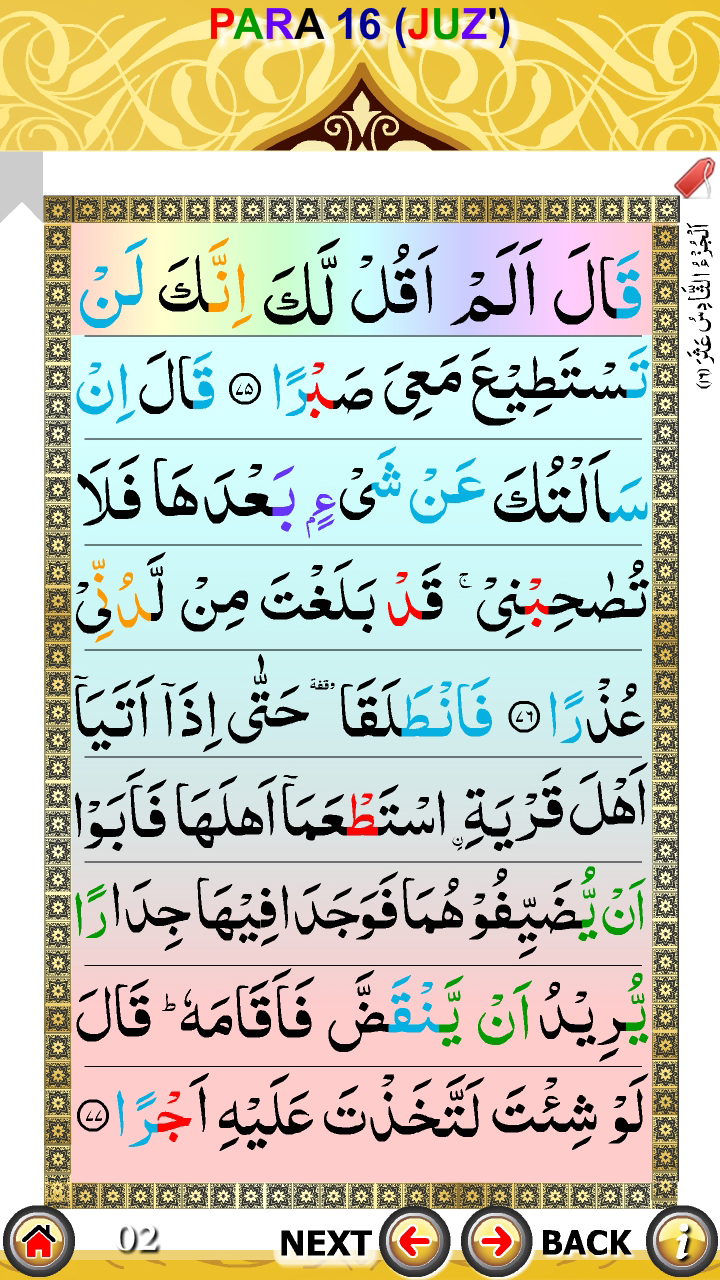 PARA 16 (JUZ')
اَلْجُزْءُ السَّادِسُ عَشَرَ (١٦)
قَالَ اَلَمْ اَقُلْ لَّكَ اِنَّكَ لَنْ
تَسْتَطِيْعَ مَعِىَ صَبْرًا ۝۷۵ قَالَ اِنْ
سَاَلْتُكَ عَنْ شَىْءٍۭ بَعْدَهَا فَلَا
تُصٰحِبْنِىْ ۚ قَدْ بَلَغْتَ مِنْ لَّدُنِّىْ
عُذْرًا ۝۷۶ فَانْطَلَقَا وقفة حَتّٰۤى اِذَاۤ اَتَيَاۤ
اَهْلَ قَرْيَةِ ۨاسْتَطْعَمَاۤ اَهْلَهَا فَاَبَوْا
اَنْ يُّضَيِّفُوْهُمَا فَوَجَدَا فِيْهَا جِدَارًا
يُّرِيْدُ اَنْ يَّنْقَضَّ فَاَقَامَهٗ ؕ قَالَ
لَوْ شِئْتَ لَتَّخَذْتَ عَلَيْهِ اَجْرًا ۝۷۷
02 NEXT BACK i